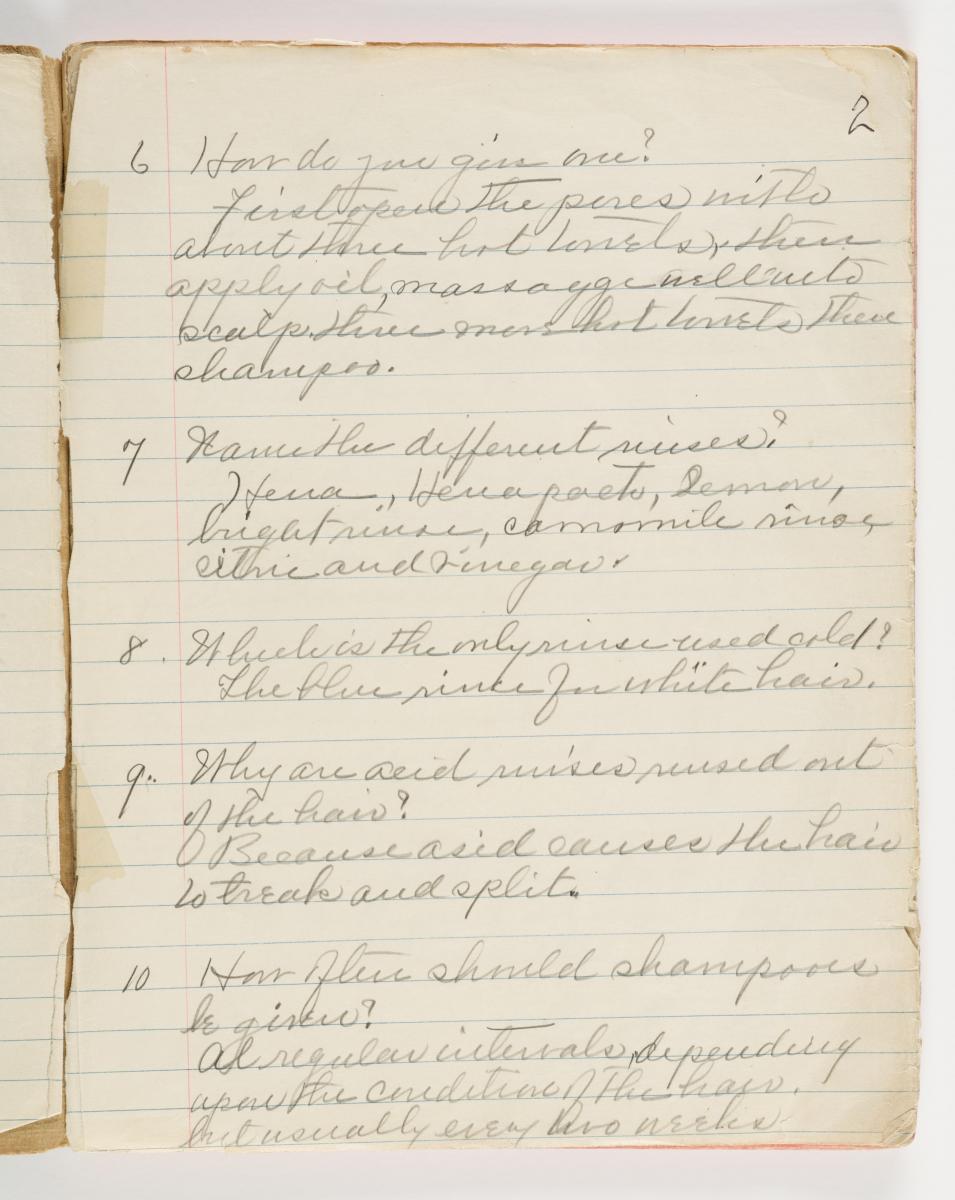 2
6 How do you give one?
First open the pores with
about three hot towels, then
apply oil, massagge well into
scalp. three more hot towels then
shampoo.
7 Name the different rinses?
Hena, Hena pack, Lemon,
bright rinse, camomile rinse,
citric and Vinegar.
8. Which is the only rinse used cold?
The blue rinse for white hair.
9.. Why are acid rinses rinsed out
of the hair?
Because acid causes the hair
to break and split.
10 How often should shampooes
be given?
At regular intervals, depending
upon the condition of the hair.
but usually every two weeks